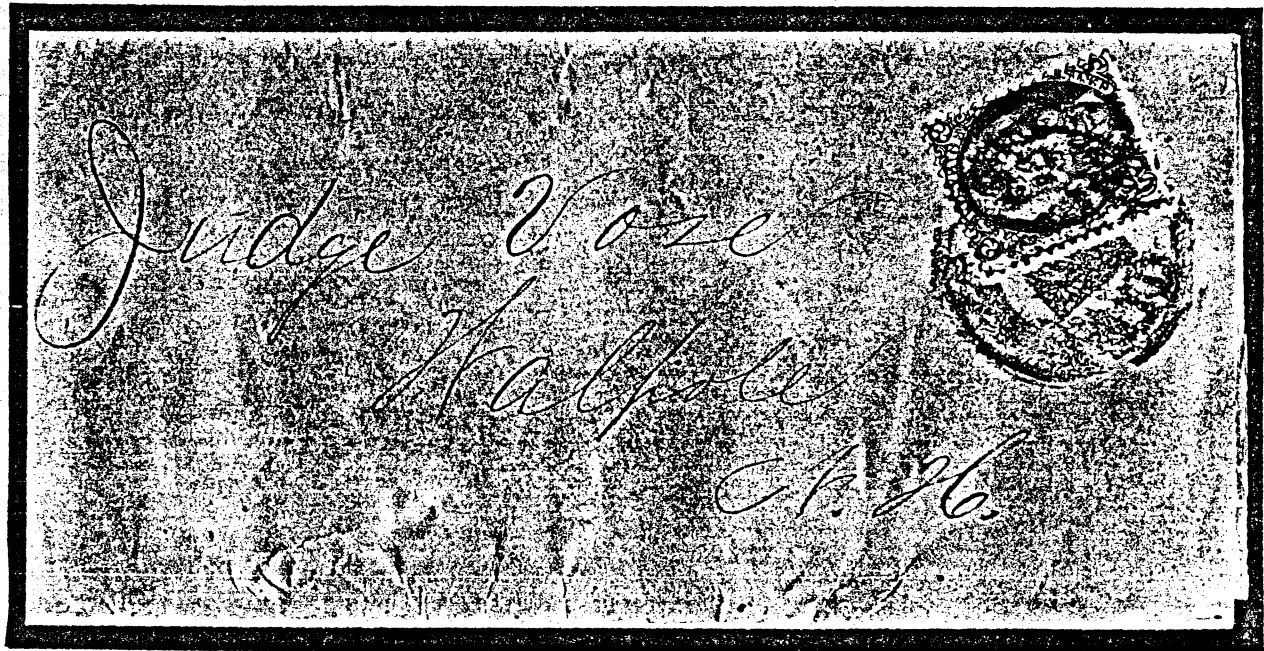 Judge Vose
Walpole
N. H.